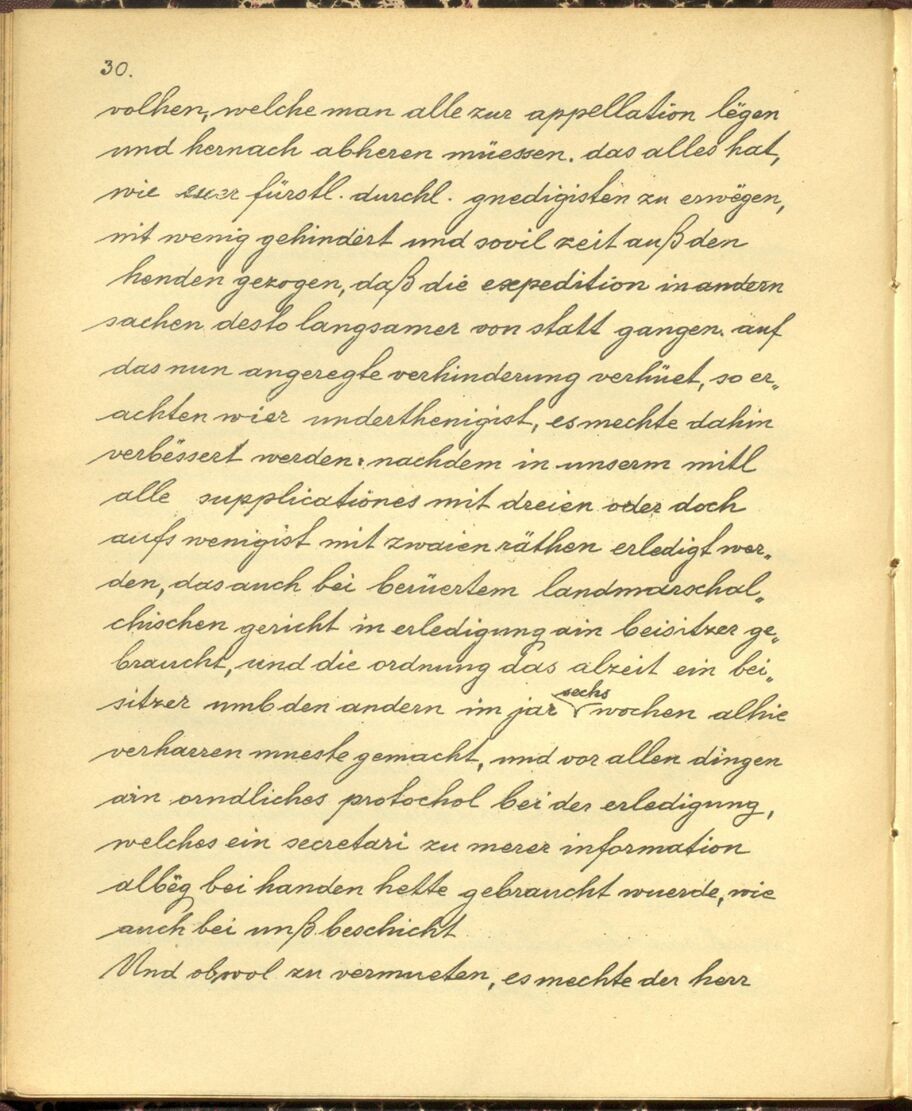 30.
volhen, welche man alle zur appellation lëgen
und hernach abheren müessen. das alles hat,
wie euer fürstl. durchl. gnedigisten zu erwëgen,
nit wenig gehindert und sovil zeit auß den
henden gezogen, daß die expedition in andern
sachen desto langsamer von statt gangen. auf
das nun angeregte verhinderung verhüet, so er„
achten wier underthenigist, es mechte dahin
verbëssert werden: nachdem in unserm mitl
alle supplicationes mit dreien oder doch
aufs wenigist mit zwaien räthen erledigt wer„
den, das auch bei berüertem landmarschal„
chischen gericht in erledigung ain beisitzer ge„
braucht, und die ordnung das alzeit ein bei„
sitzer umb den andern im jar sechs wochen alhie
verharren mueste gemacht, und vor allen dingen
ain orndliches protochol bei der erledigung,
welches ein secretari zu merer information
albëg bei handen hette gebraucht wuerde, wie
auch bei unß beschicht
Und obwol zu vermueten, es mechte der herr